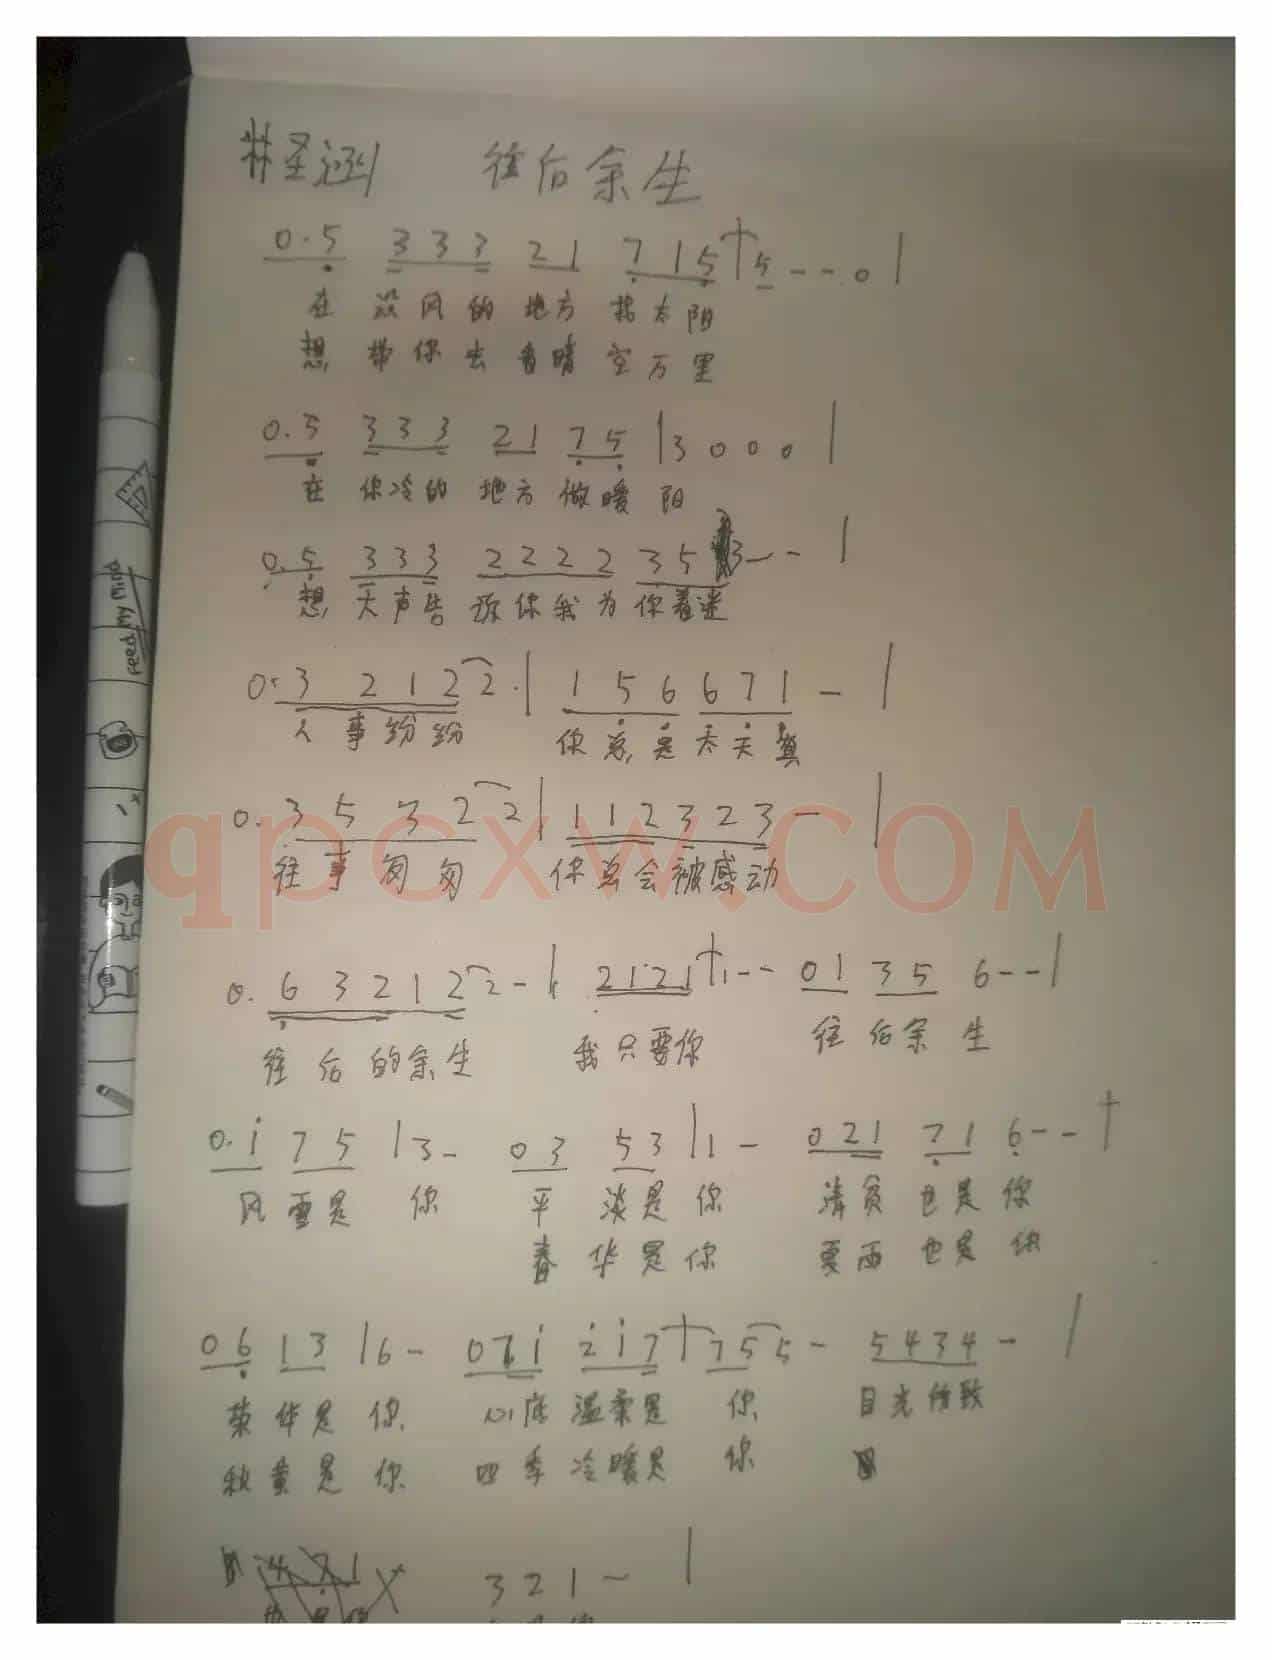 林圣涵 往后余生
0.5 333 21 715 | 5 - - . 0 |
在 没风的 地方 找太阳
想 带你去 看晴空万里
0.5 333 21 75 | 3 0 0 0 |
在 你冷的 地方 做暖阳
0.5 333 2222 35 3 - - |
想 大声告 诉你我为你着迷
0. 3 2 1 2 2 . | 1 5 6 6 7 1 - |
人事纷纷 你总是太天真
0. 3 5 3 2 2 | 1 1 2 3 2 3 - |
往事匆匆 你总会被感动
0. 6 3 2 1 2 2 - | 2121 | 1 - - 0 1 3 5 6 - - |
往后的余生 我只要你 往后余生
0. i 7 5 | 3 - 0 3 5 3 | 1 - 0 2 1 7 1 6 - - |
风雪是 你 平 淡是 你 清贫 也是 你
春 华是 你 夏雨 也是 你
0 6 1 3 | 6 - 0 7 i 2 i 7 | 7 5 5 - 5 4 3 4 - |
荣华是 你 心底 温柔是 你 目光所致
秋黄是 你 四季冷暖是 你
3 2 1 - |
qpcxw.COM
Feed My Mind